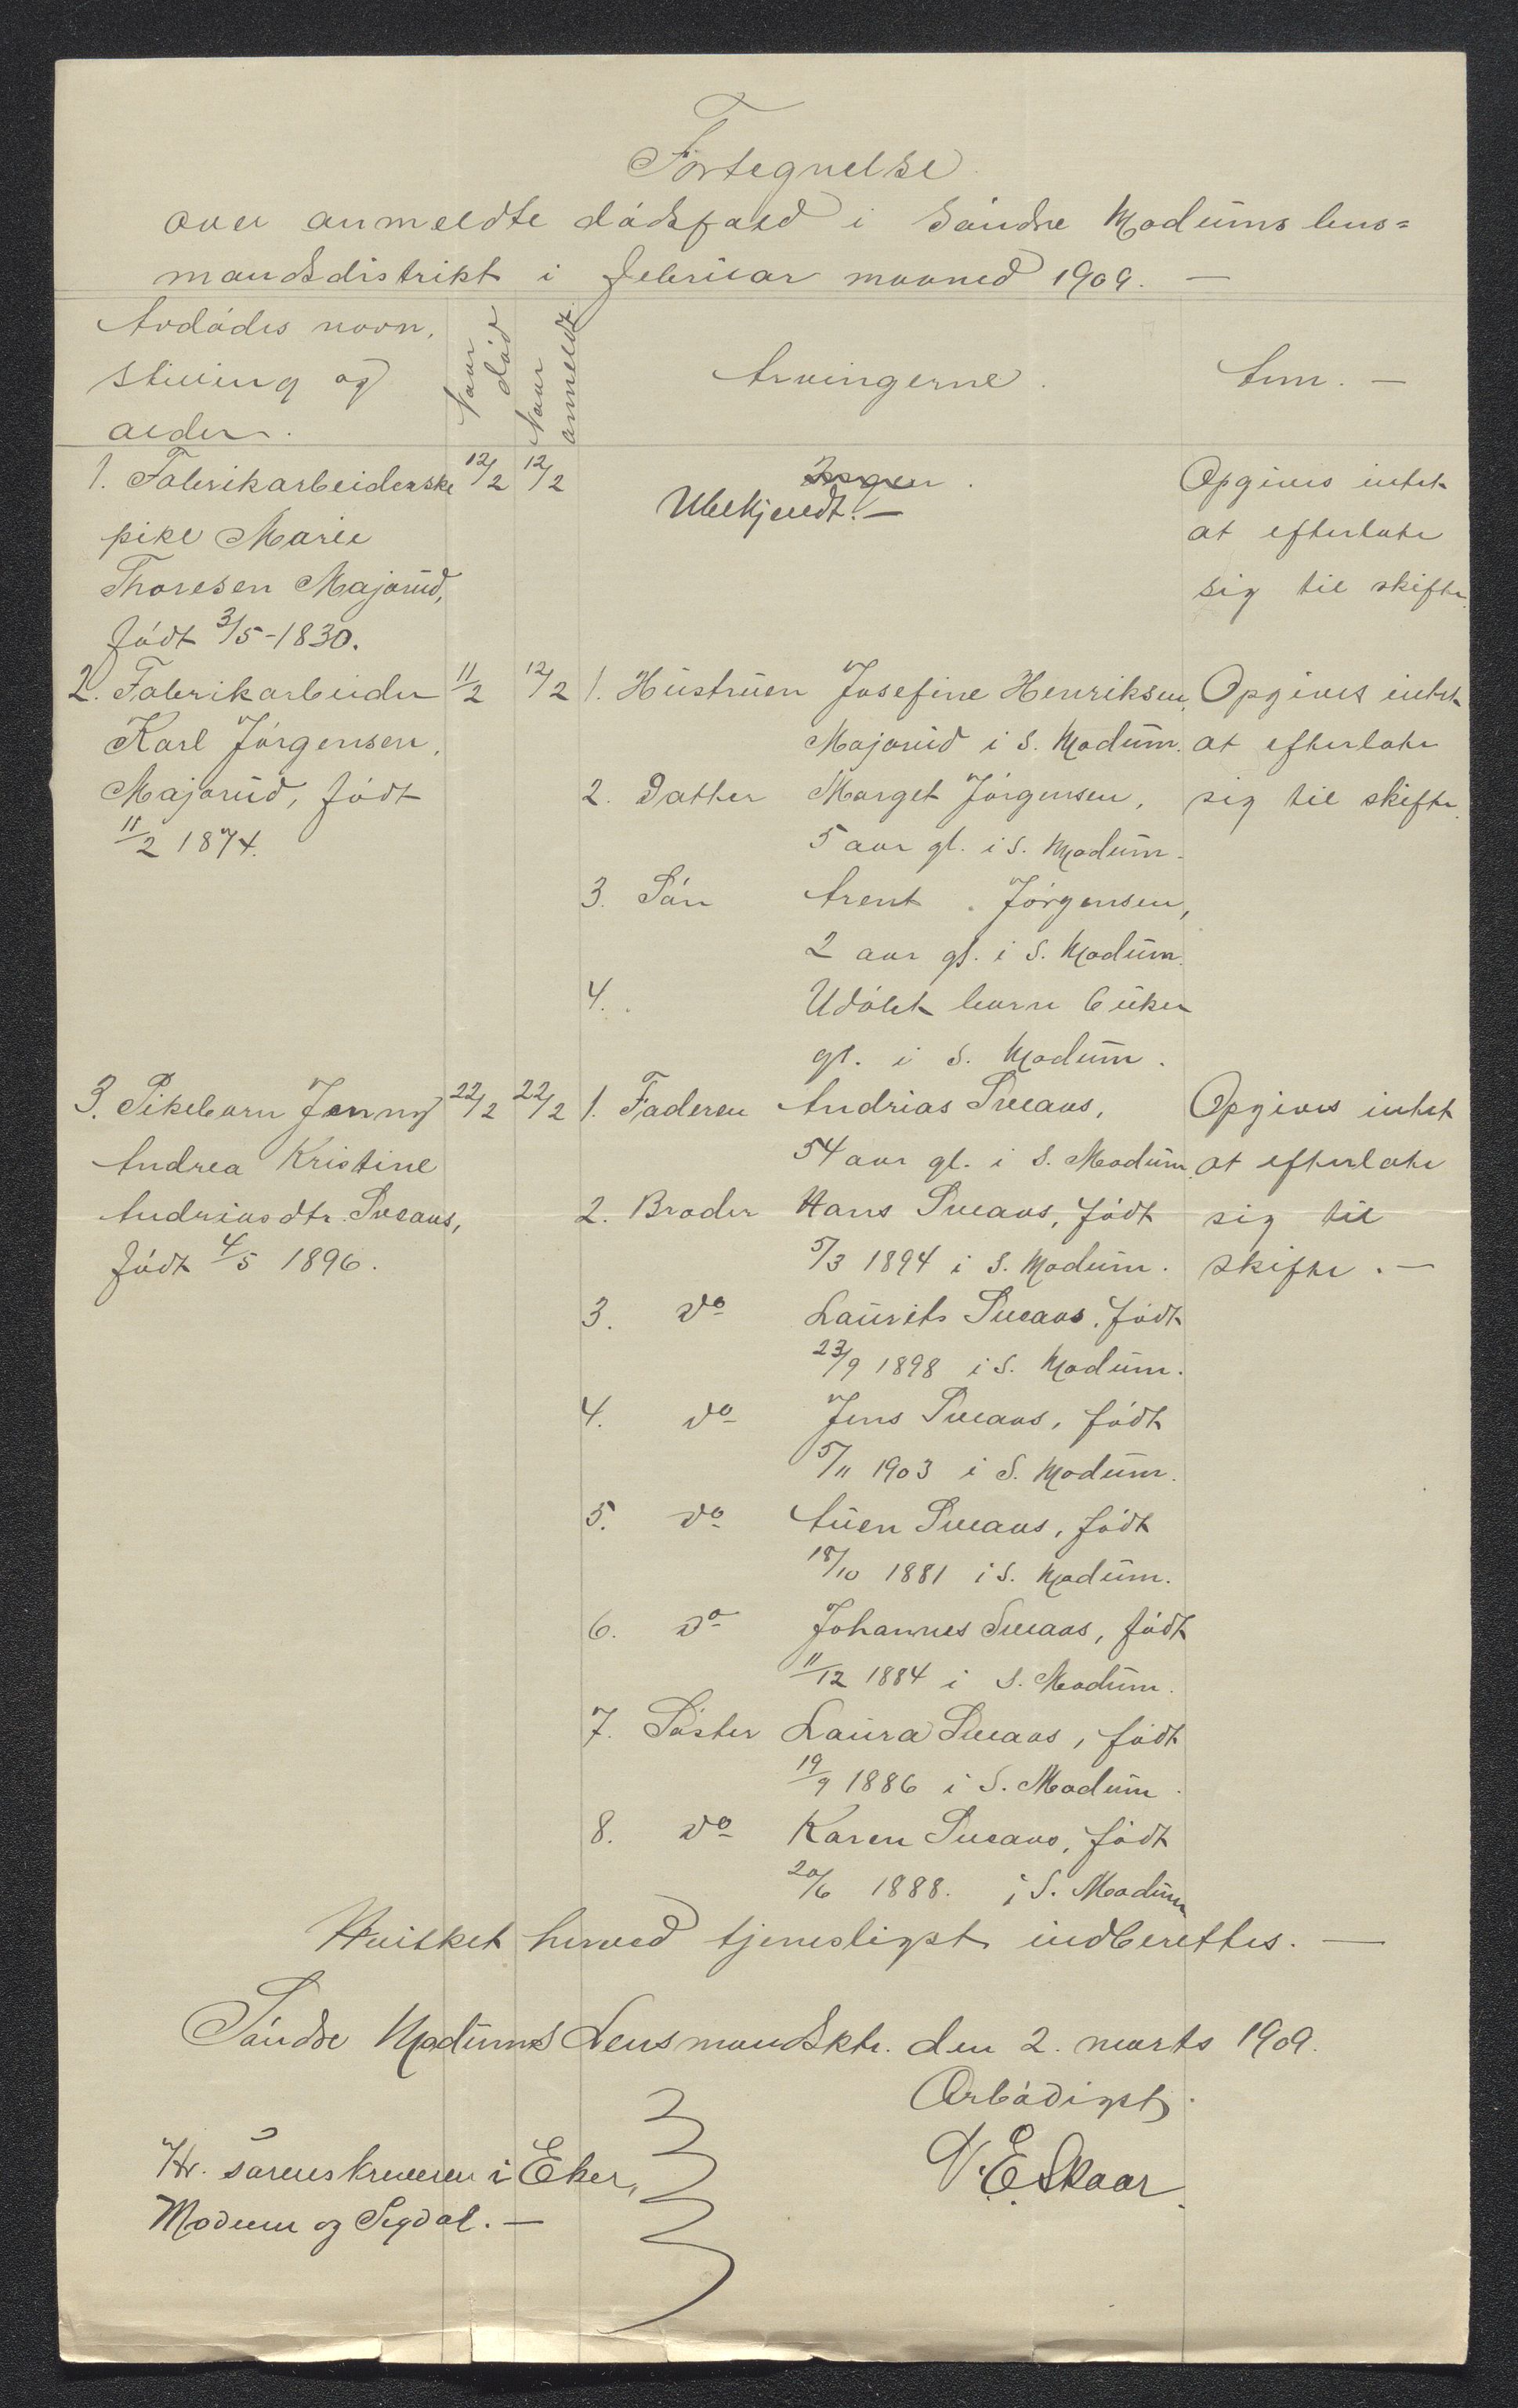 Fortegnelse
over anmeldte dödsfald i Söndre Modums lens=
mandsdistrikt i februar maaned 1909. —
Avdödes navn,
stilling og
alder.
Naar
död
Naar
anmeldt
Arvingerne.
Anm. —
1. Fabrikarbeiderske 12/2 12/2 Ingen. Opgives intet
Ubekjendt. —
pike Marie at efterlate
Thoresen Majorud, sig til skifte.
födt 3/5-1830.
2. Fabrikarbeider 11/2 12/2 1. Hustruen Josefine Henriksen, Opgives intet
Karl Jörgensen, Majorud i S. Modum. at efterlate
Majorud, födt 2. Datter Marget Jörgensen, sig til skifte.
11/2 1874. 5 aar gl. i S. Modum.
3. Sön Arent Jörgensen,
2 aar gl. i S. Modum.
4. Udöbt barn 6 uker
gl. i S. Modum.
3. Pikebarn Jenny 22/2 22/2 1. Faderen Andrias Sveaas, Opgives intet
Andrea Kristine 54 aar gl. i S. Modum. at efterlate
Andriasdtr. Sveaas, 2. Broder Hans Sveaas, födt sig til
födt 4/5 1896. 5/3 1894 i S. Modum. skifte. —
3. do Laurits Sveaas, födt
23/9 1898 i S. Modum.
4. do Jens Sveaas, födt
5/11 1903 i S. Modum.
5. do Auen Sveaas, födt
18/10 1881 i S. Modum.
6. do Johannes Sveaas, födt
11/12 1884 i S. Modum.
7. Söster Laura Sveaas, födt
19/9 1886 i S. Modum.
8. do Karen Sveaas, födt
20/6 1888. i S. Modum
Hvilket herved tjenesligst indberettes. —
Söndre Modums Lensmandsktr. den 2. marts 1909.
Ærbödigst.
E. Skaar.
Hr. sorenskriveren i Eker,
Modum og Sigdal. —